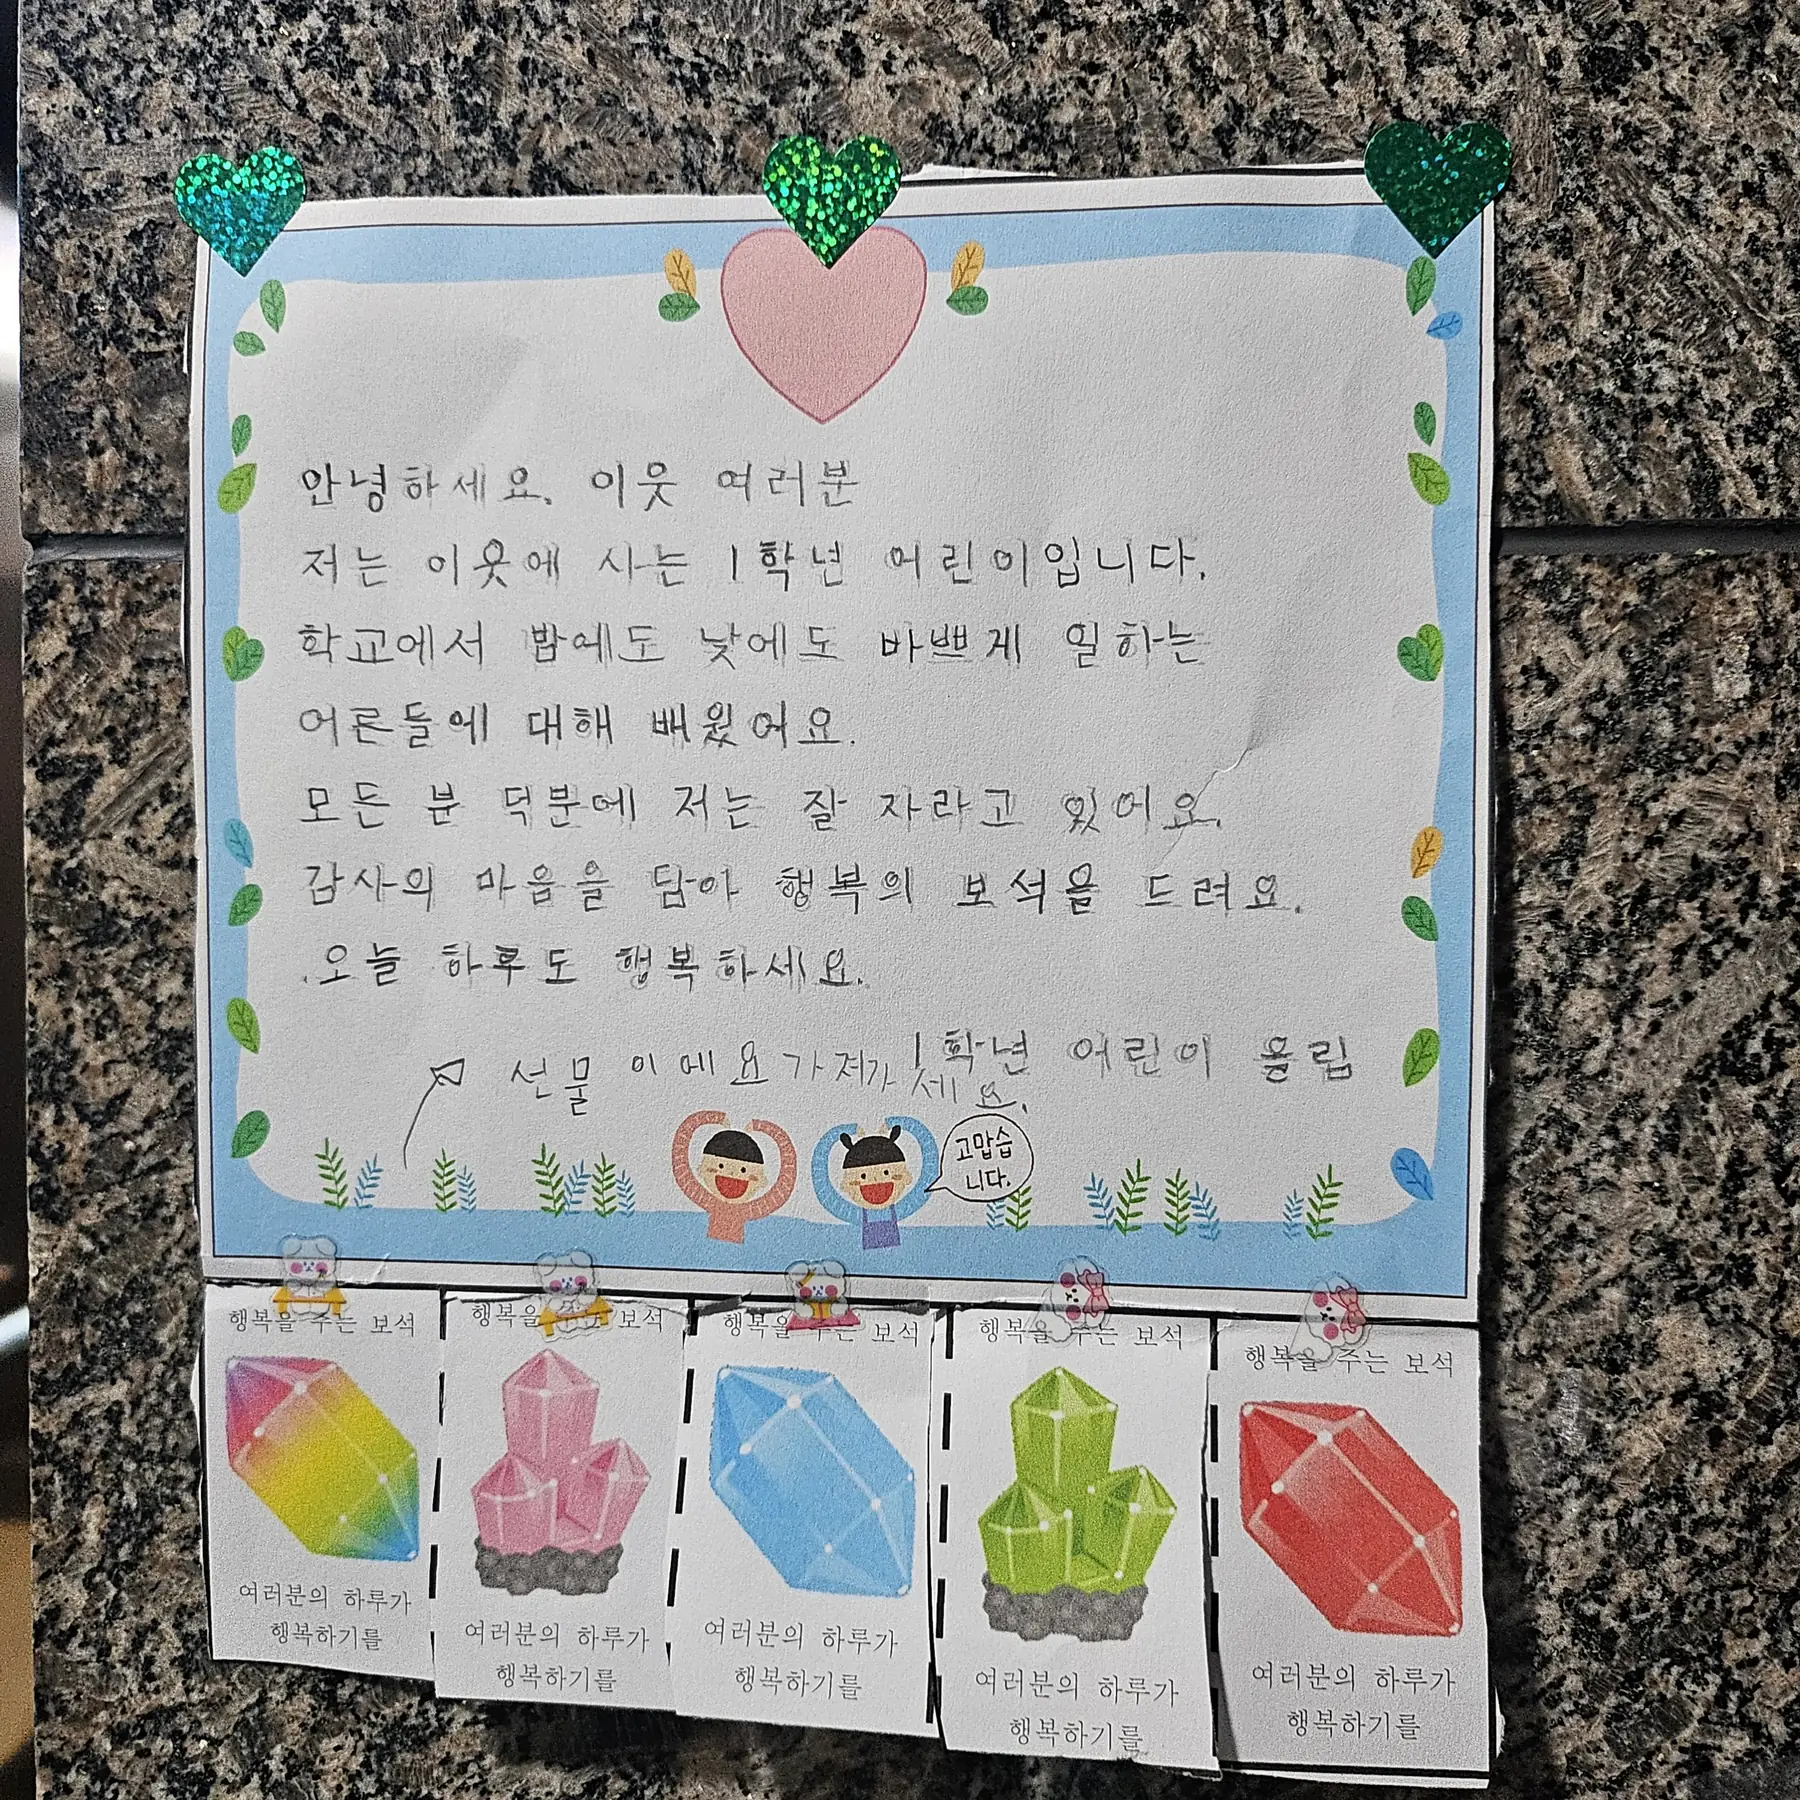 안녕하세요. 이웃 여러분
저는 이웃에 사는 1학년 어린이입니다.
학교에서 밤에도 낮에도 바쁘게 일하는
어른들에 대해 배웠어요.
모든 분 덕분에 저는 잘 자라고 있어요.
감사의 마음을 담아 행복의 보석을 드려요.
오늘 하루도 행복하세요.
1학년 어린이 올림
선물 이에요 가져가세요.
고맙습
니다.
행복을 주는 보석
여러분의 하루가
행복하기를
행복을 주는 보석
여러분의 하루가
행복하기를
행복을 주는 보석
여러분의 하루가
행복하기를
행복을 주는 보석
여러분의 하루가
행복하기를
행복을 주는 보석
여러분의 하루가
행복하기를